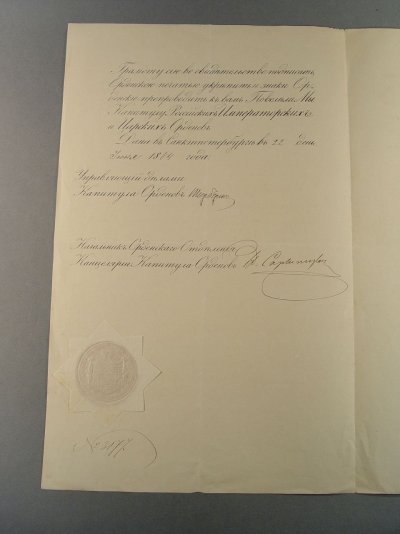 Грамоту сію во свидѣтельство подписать,
Орденскою печатью укрѣпить и знаки Ор-
денскіе препроводить къ вамъ Повелѣли Мы
Капитулу Россійскихъ Императорскихъ
и Царскихъ Орденовъ.
Дана въ Санктпетербургѣ въ 22 день
Іюня 1869 года.
Управляющій дѣлами
Капитула Орденовъ
Начальникъ Орденскаго Отдѣленія
Канцеляріи Капитула Орденовъ
№ 3177